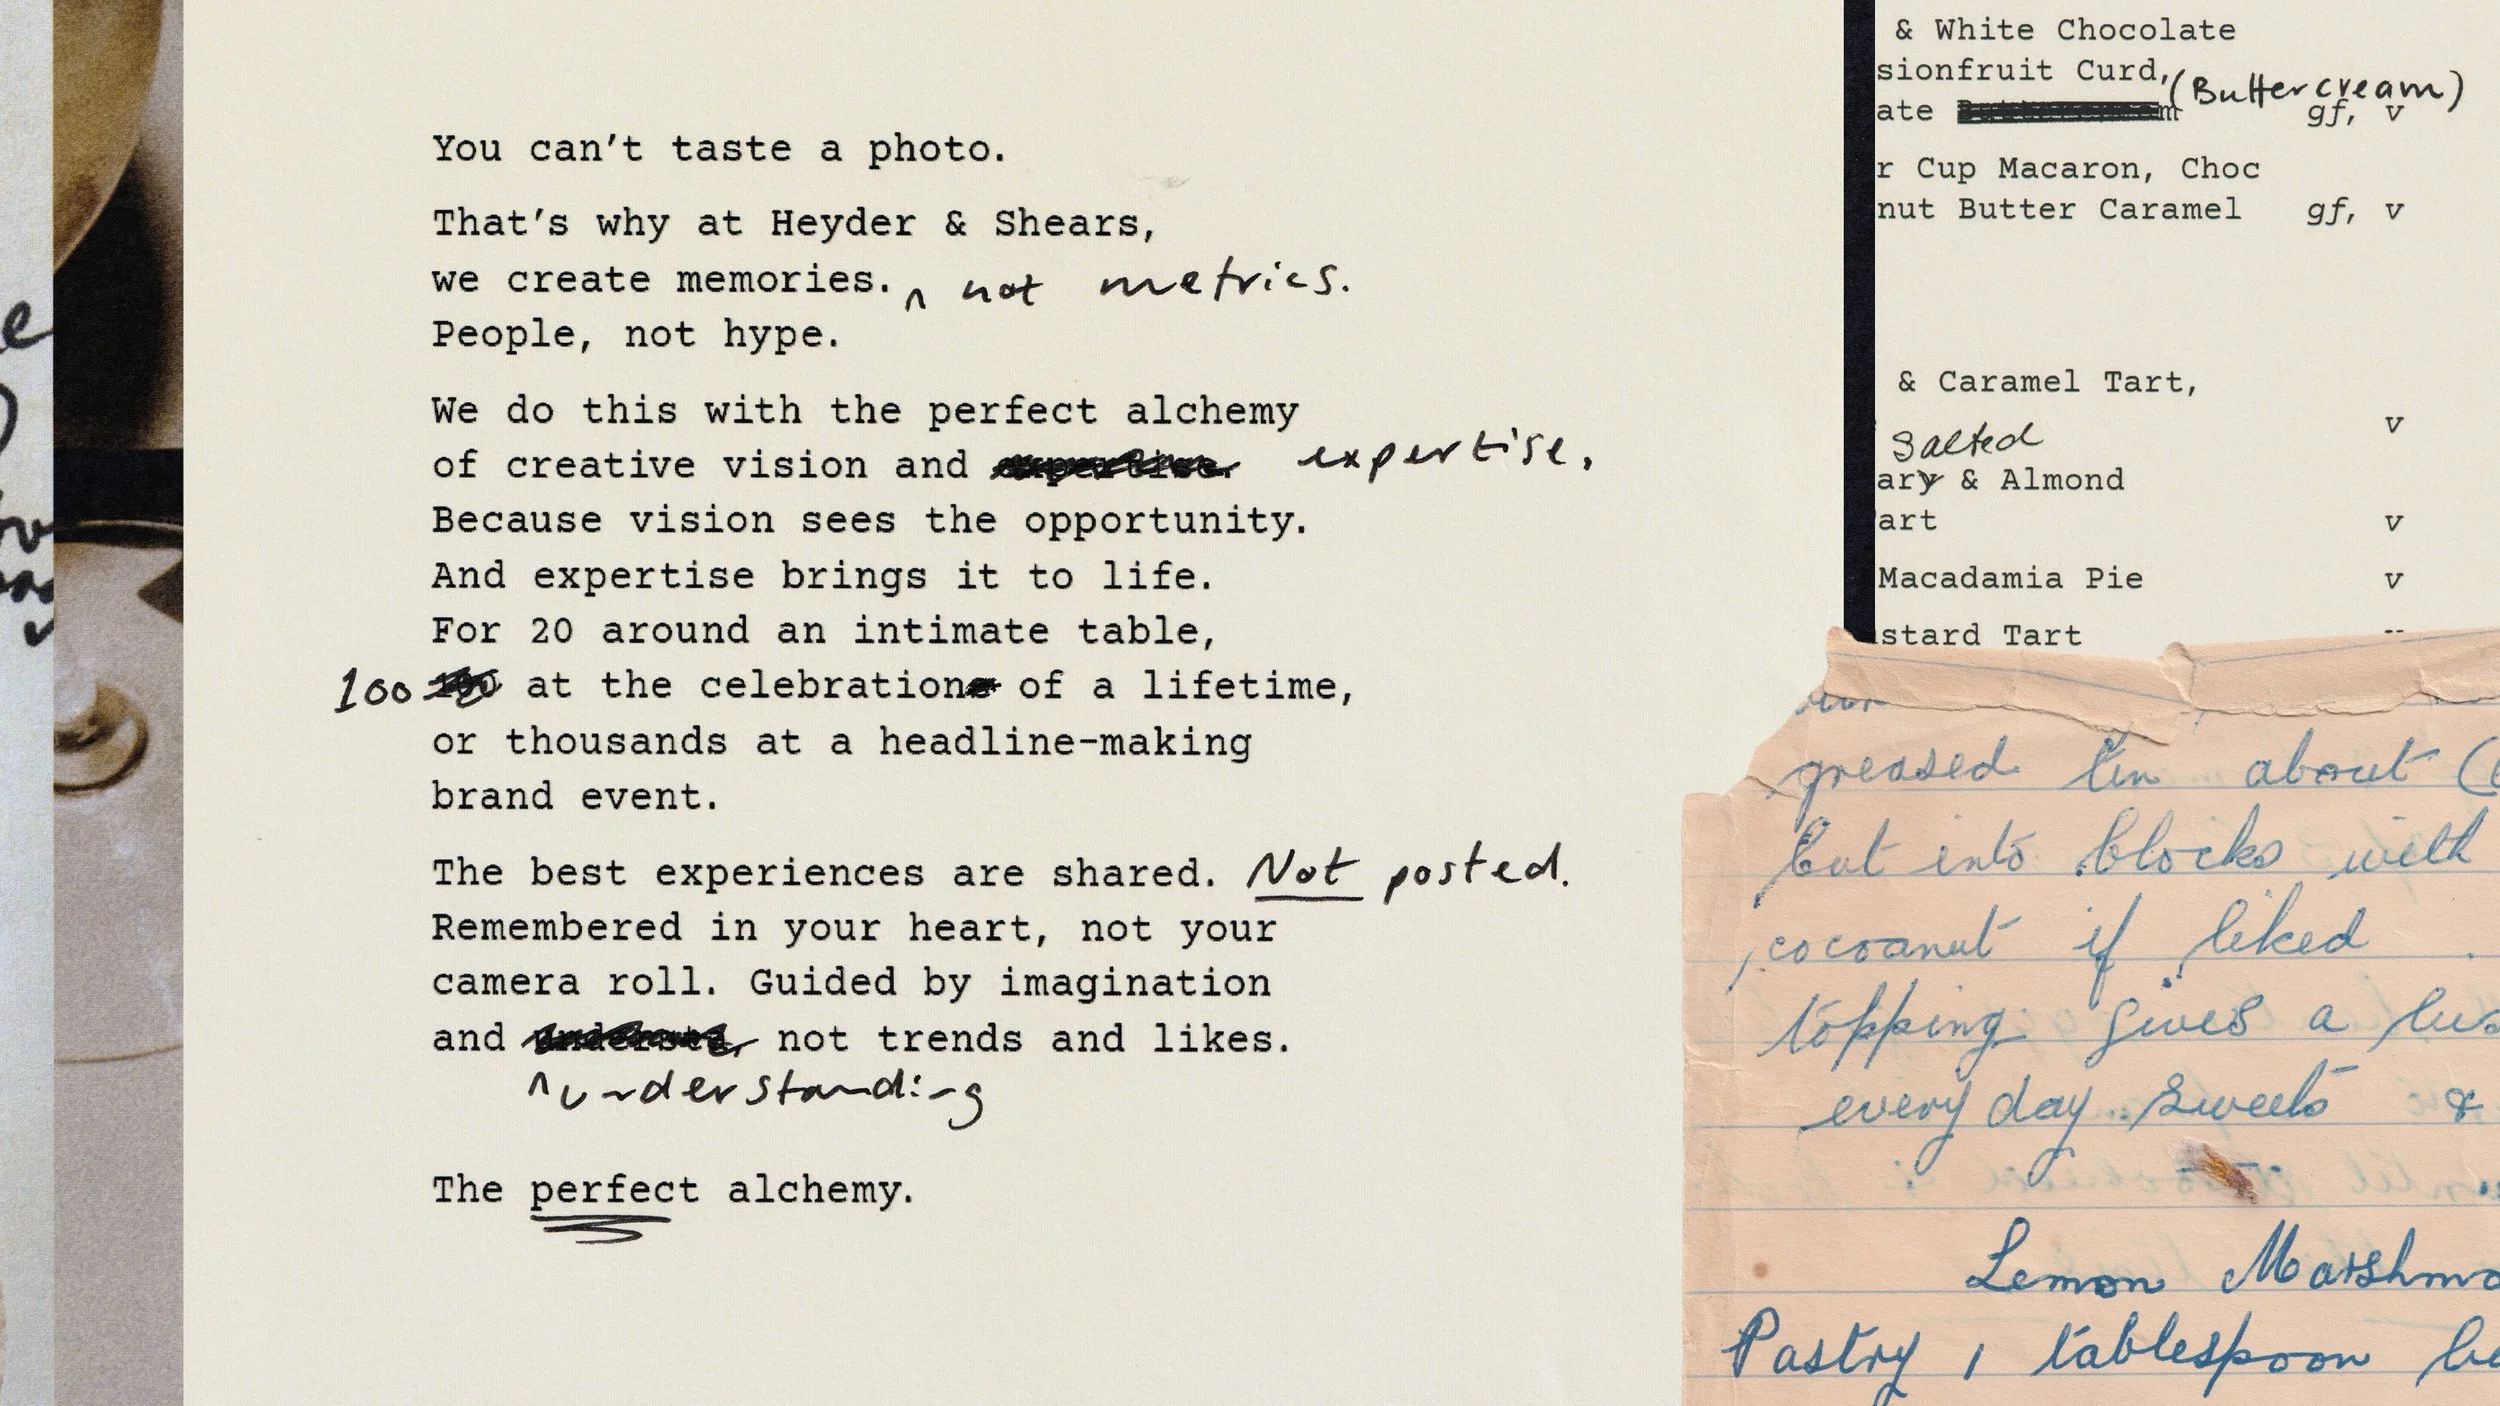 You can't taste a photo.
That's why at Heyder & Shears,
we create memories. ^ not metrics.
People, not hype.
We do this with the perfect alchemy
of creative vision and expertise. expertise.
Because vision sees the opportunity.
And expertise brings it to life.
For 20 around an intimate table,
100 at the celebration of a lifetime,
or thousands at a headline-making
brand event.
The best experiences are shared. Not posted.
Remembered in your heart, not your
camera roll. Guided by imagination
and not trends and likes.
^ understanding
The perfect alchemy.
& White Chocolate
sionfruit Curd,
(Buttercream)
ate gf, v
r Cup Macaron, Choc
nut Butter Caramel gf, v
& Caramel Tart,
v
Salted
ary & Almond
art v
Macadamia Pie v
stard Tart
greased tin about
but into blocks with
cocoanut if liked
topping gives a
every day sweets &
Lemon Marshmo
Pastry 1 tablespoon